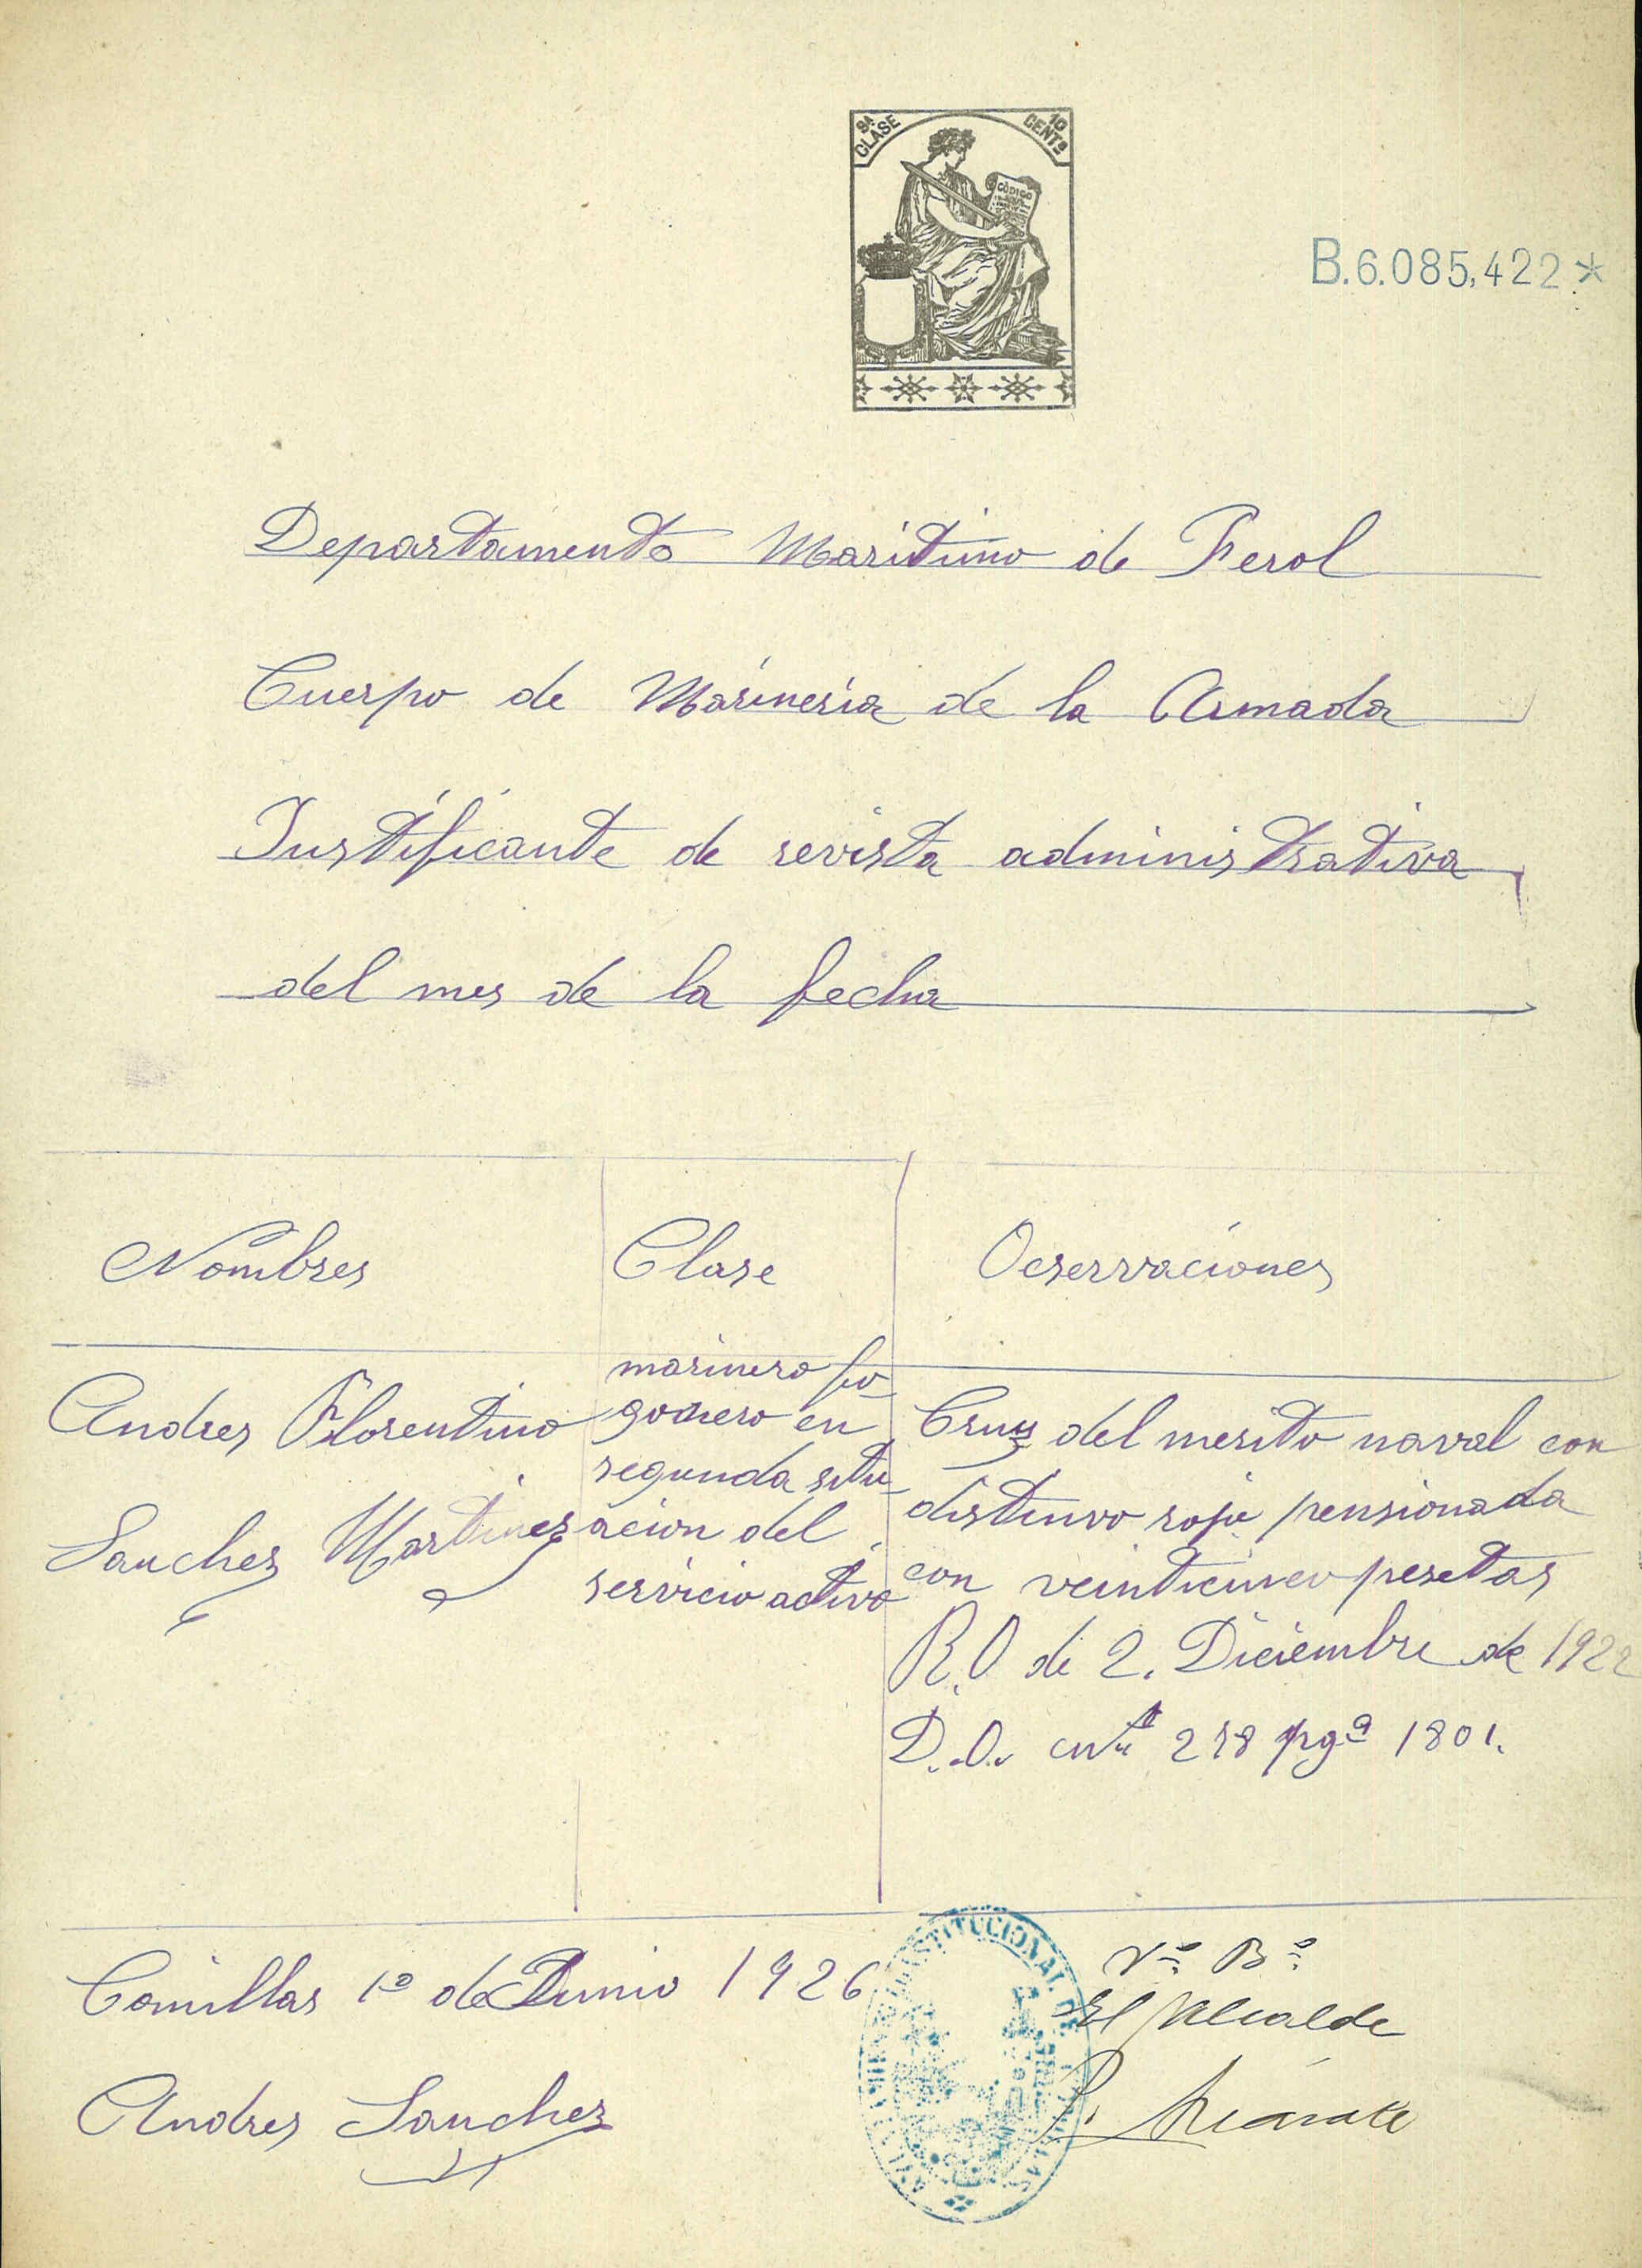 8ª CLASE
10 CENTS
CÓDIGO
B.6.085,422*
Departamento Maritimo de Ferol
Cuerpo de Marineria de la Armada
Justificante de revista administrativa
del mes de la fecha
Nombres
Clase
Oeservaciones
Andres Florentino
Sanchez Martinez
marinero fo
gonero en
segunda situ
acion del
servicio activo
Cruz del merito naval con
distinvo rojo pensionada
con veinticinco pesetas
R.O de 2. Diciembre de 1922
D.O. 278 pgª 1801.
Comillas 1º de Junio 1926
Andres Sanchez
Vº Bº
El Alcalde
P.
CONSTITUCIONAL DE